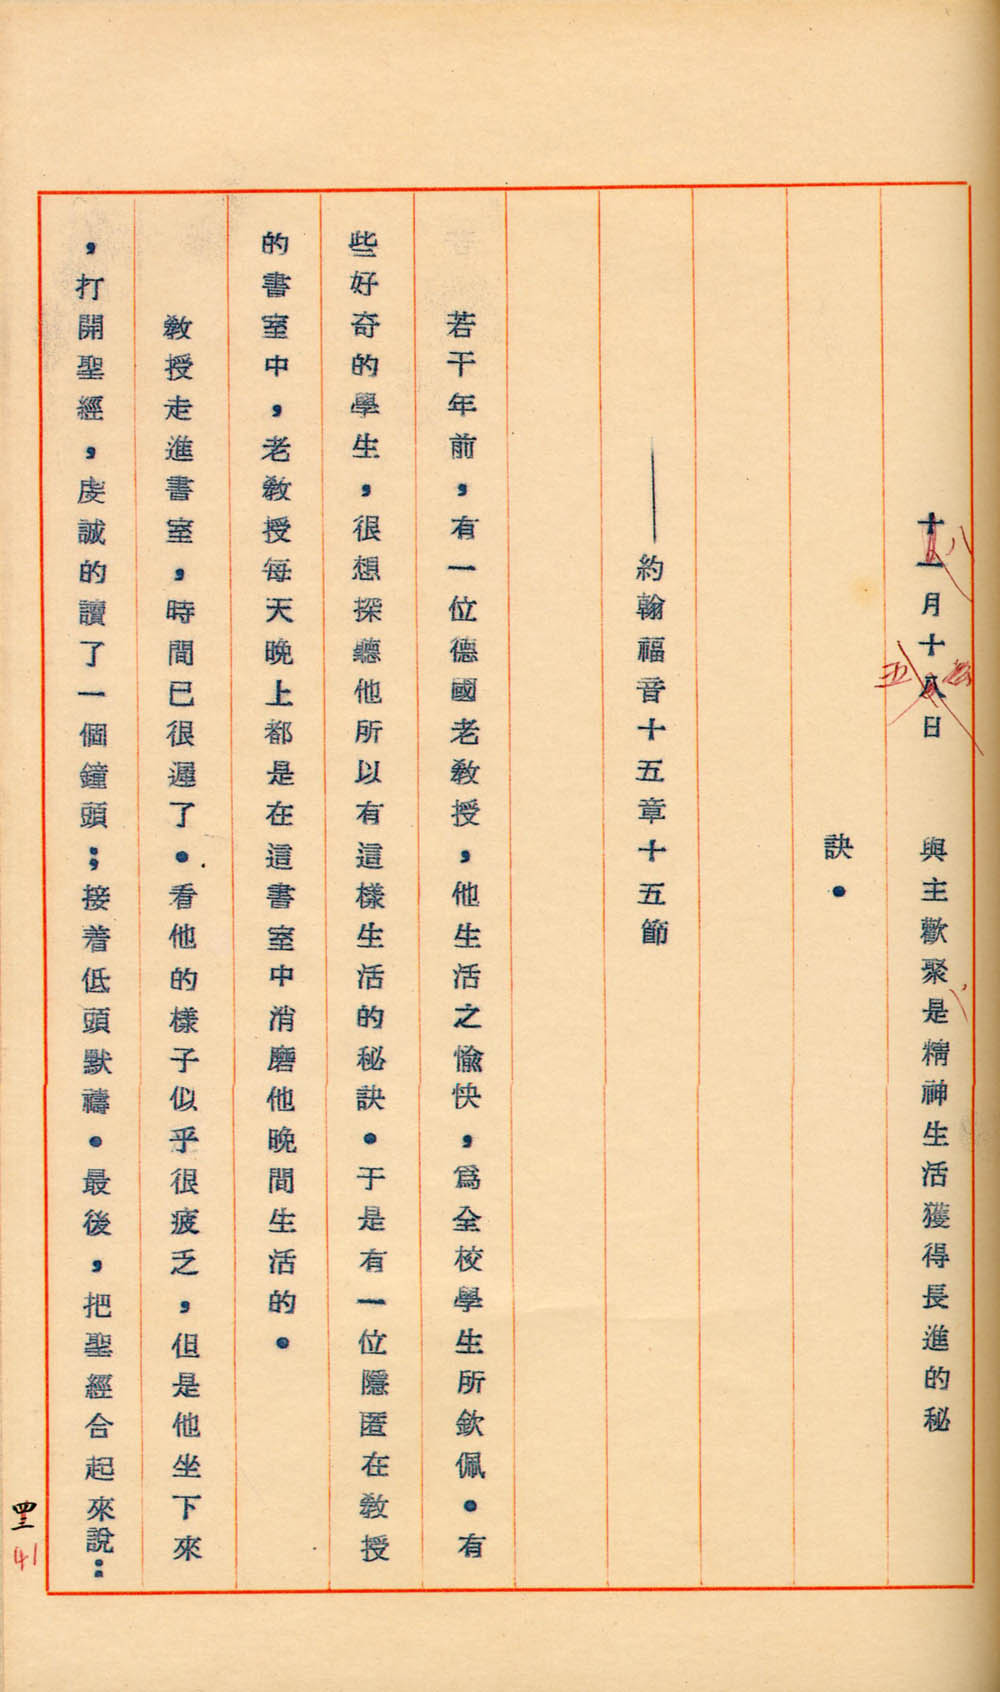 十一月十八日　與主歡聚是精神生活獲得長進的秘
訣。
——約翰福音十五章十五節
若干年前，有一位德國老教授，他生活之愉快，爲全校學生所欽佩。有
些好奇的學生，很想探聽他所以有這樣生活的秘訣。于是有一位隱匿在教授
的書室中，老教授每天晚上都是在這書室中消磨他晚間生活的。
教授走進書室，時間已很遲了。看他的樣子似乎很疲乏，但是他坐下來
，打開聖經，虔誠的讀了一個鐘頭；接着低頭默禱。最後，把聖經合起來說：
八
五
41